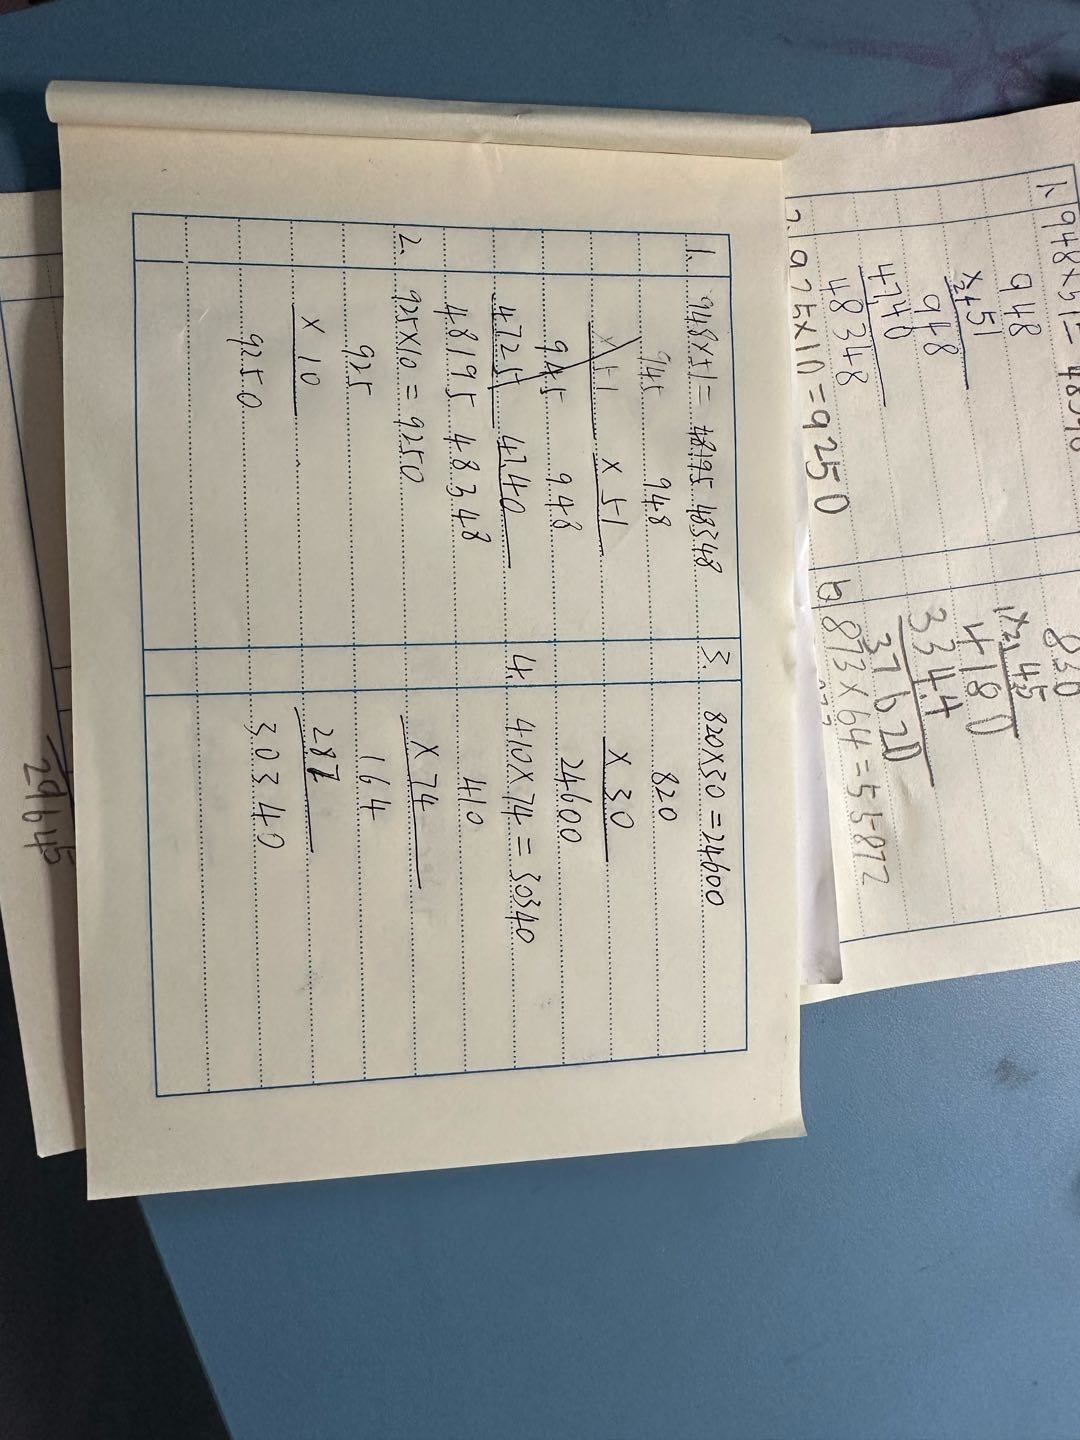 1. 948×51= 48195 48348
945 948
×51 ×51
945 948
4725 4740
48195 48348
2. 925×10=9250
925
× 10
9250
3. 820×30=24600
820
×30
24600
4. 410×74=30340
410
×74
164
287
30340
1. 948×51=
948
×51
948
4740
48348
2. 925×10=9250
×45
4180
3344
37620
6. 873×64=55872
29645